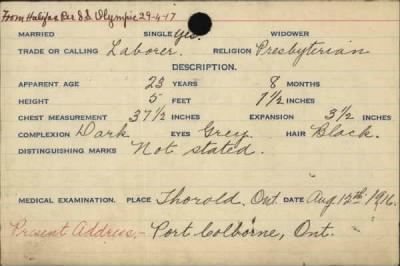 From Halifax Per S.S Olympic 29-4-17
MARRIED SINGLE Yes. WIDOWER
TRADE OR CALLING Laborer. RELIGION Presbyterian
DESCRIPTION.
APPARENT AGE 23 YEARS 8 MONTHS
HEIGHT 5 FEET 7½ INCHES
CHEST MEASUREMENT 37½ INCHES EXPANSION 3½ INCHES
COMPLEXION Dark EYES Grey. HAIR Black.
DISTINGUISHING MARKS Not stated.
MEDICAL EXAMINATION. PLACE Thorold, Ont. DATE Aug 12th 1916.
Present Address,- Port Colborne, Ont.